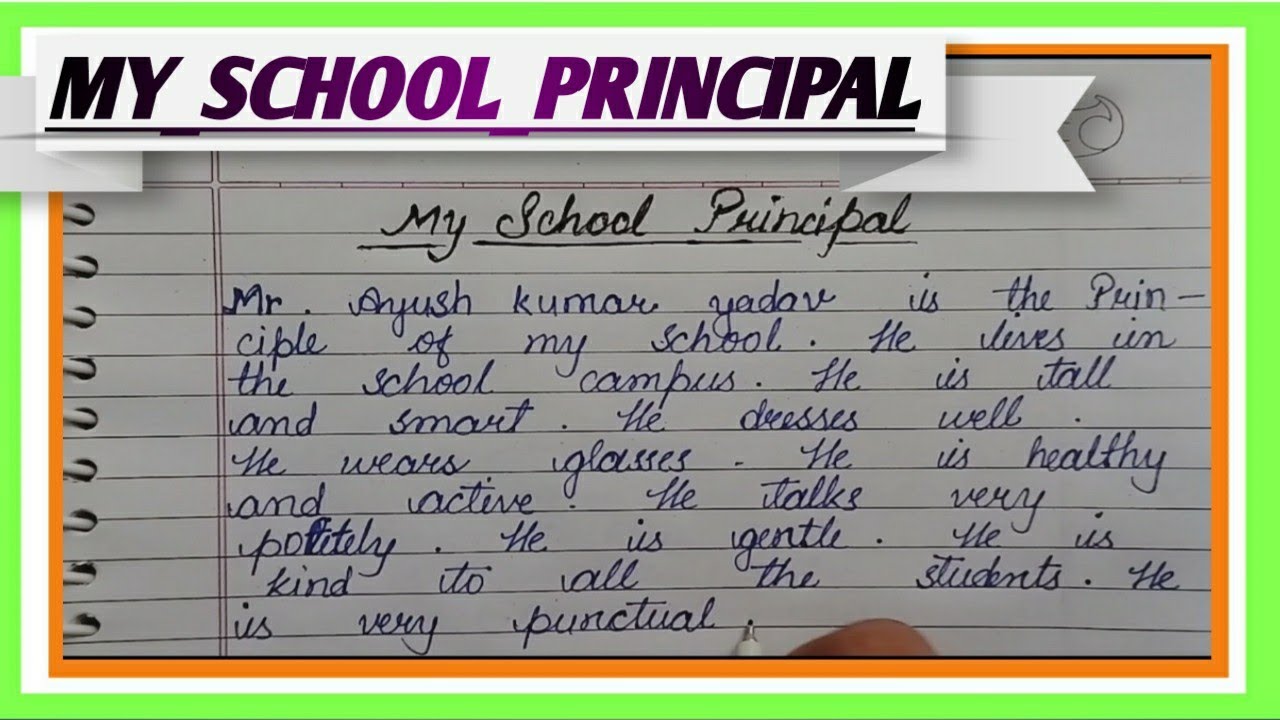 MY SCHOOL PRINCIPAL
My School Principal
Mr. Ayush kumar yadav is the Prin-
ciple of my school. He lives in
the school campus. He is tall
and smart. He dresses well.
He wears glasses. He is healthy
and active. He talks very
politely. He is gentle. He is
kind to all the students. He
is very punctual.